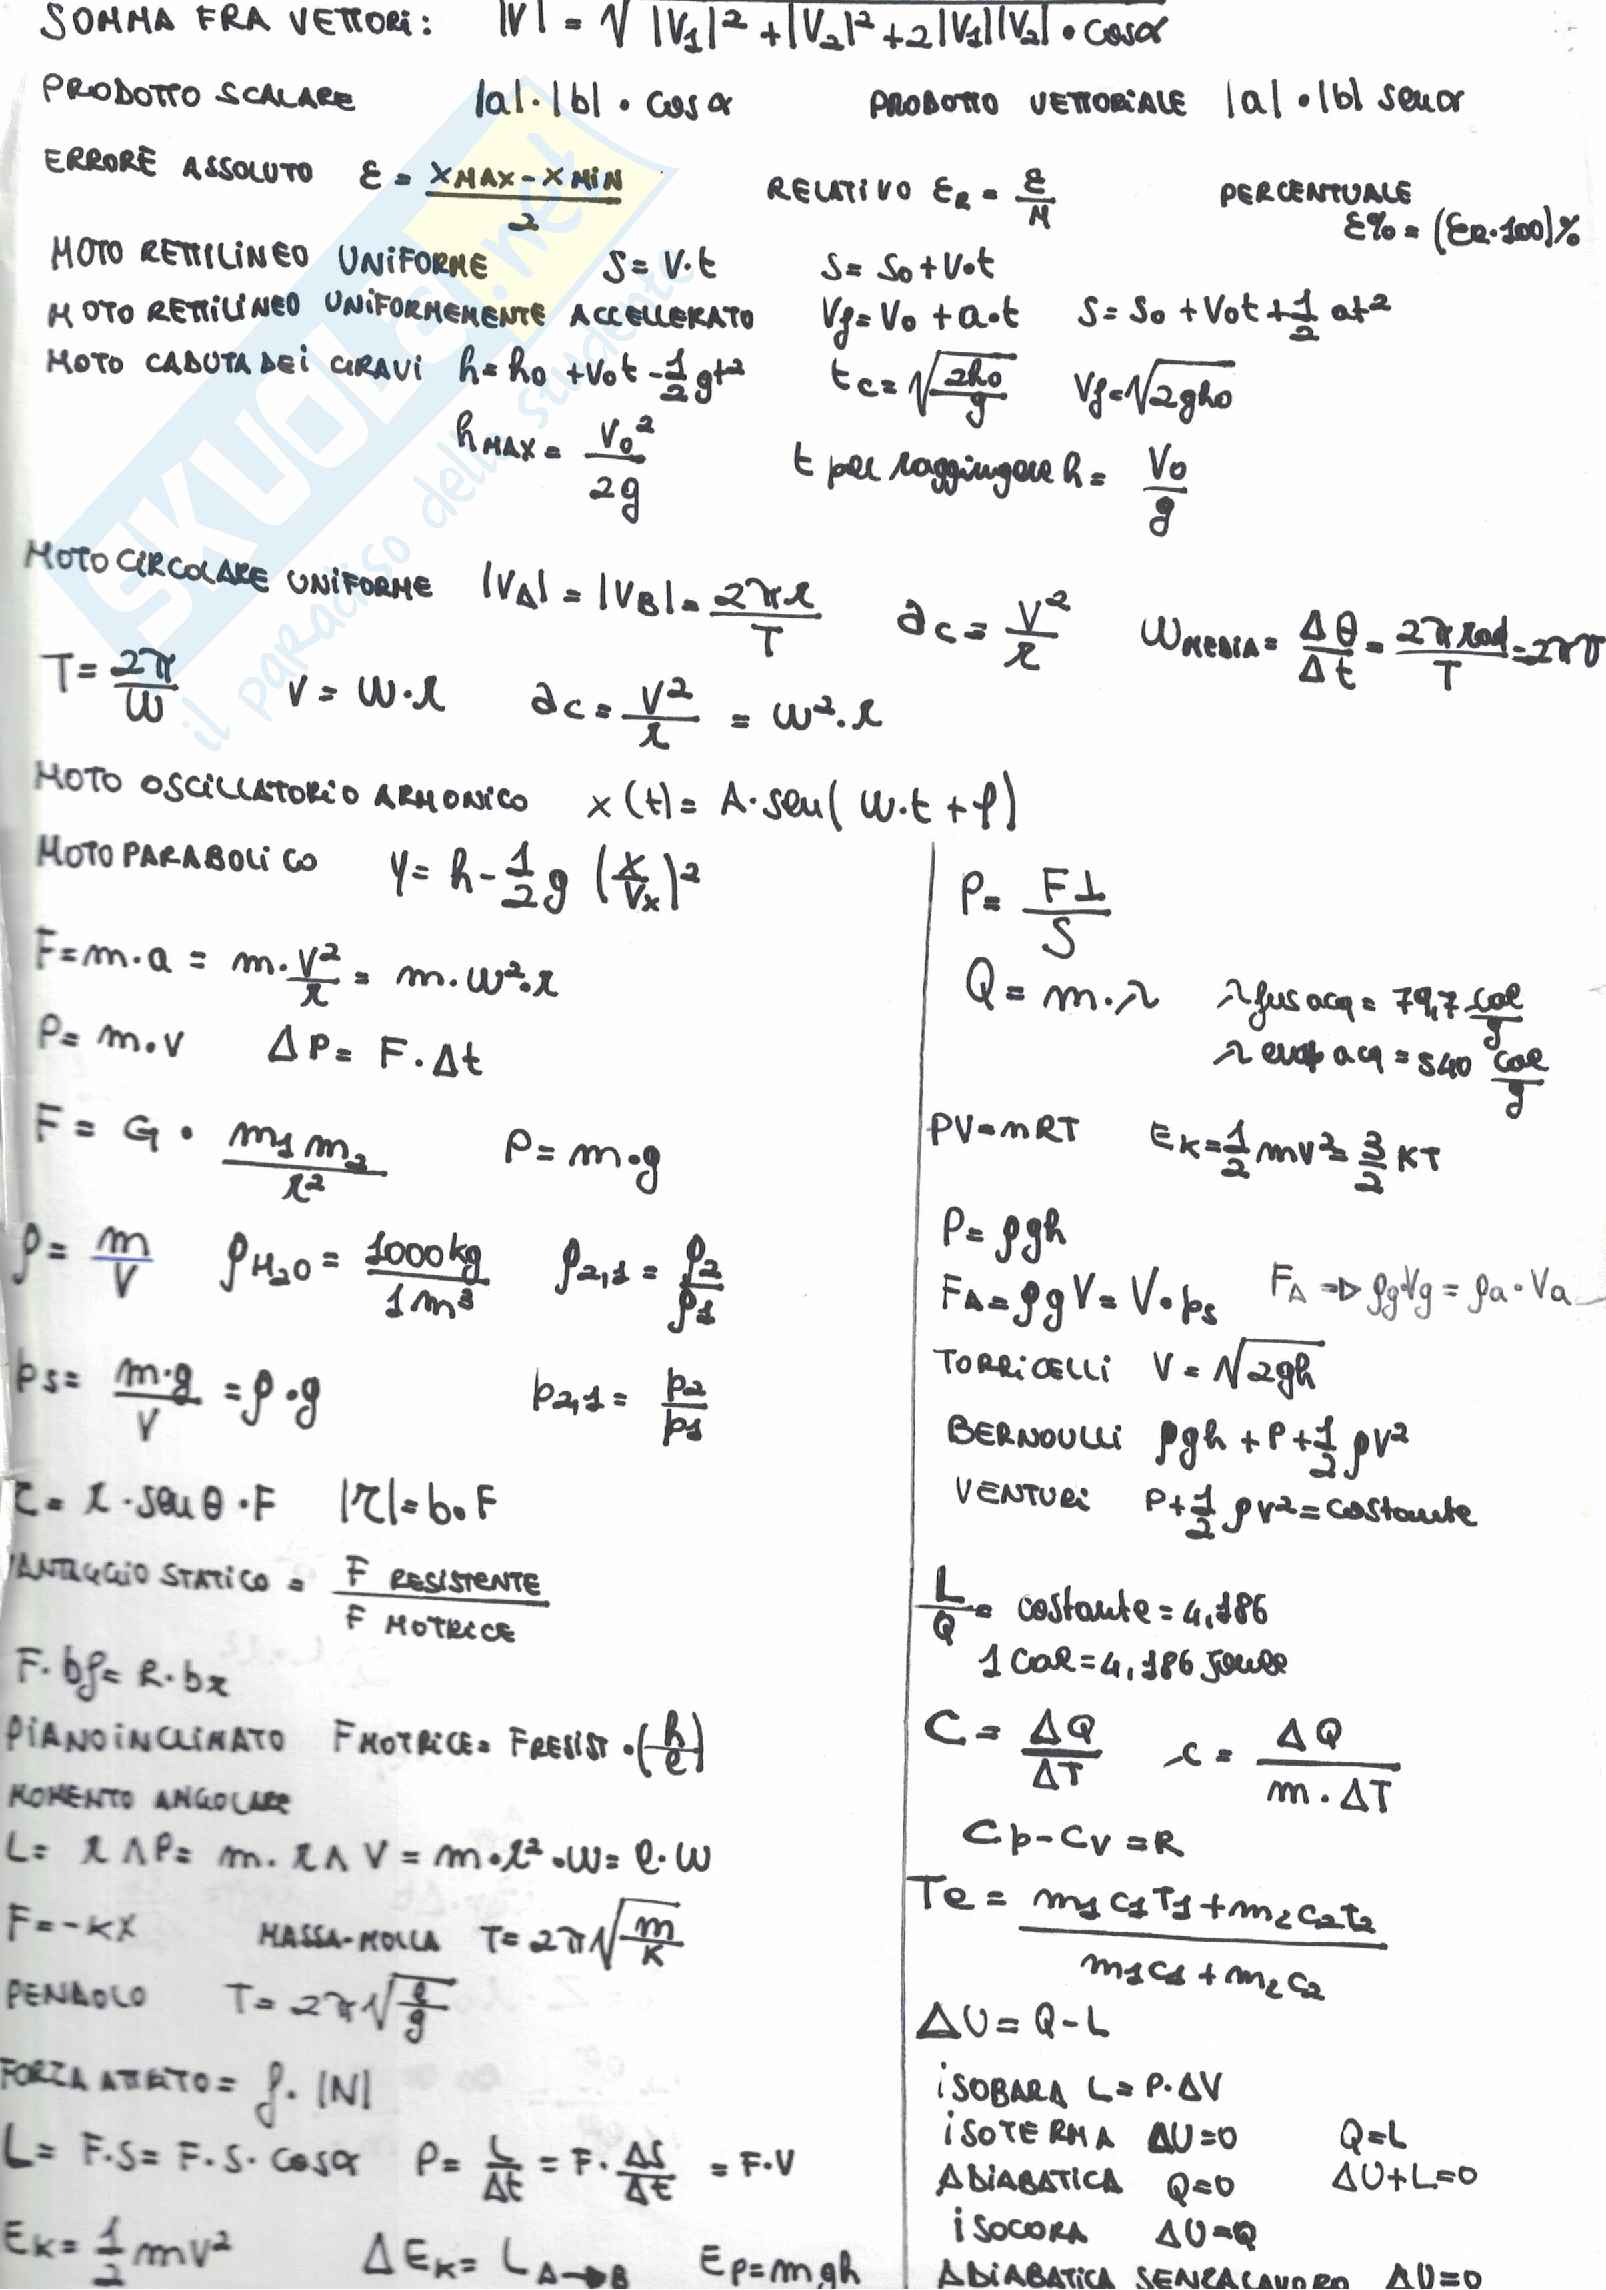 SOMMA FRA VETTORI: |V| = √|V₁|² + |V₂|² + 2|V₁||V₂| • cosα
PRODOTTO SCALARE |a|·|b| • cosα PRODOTTO VETTORIALE |a|•|b| senα
ERRORE ASSOLUTO ε = (xMAX - xMIN)/2 RELATIVO εR = ε/M PERCENTUALE
ε% = (εR·100)%
MOTO RETTILINEO UNIFORME S = V·t S = S₀ + V•t
MOTO RETTILINEO UNIFORMEMENTE ACCELLERATO Vf = V₀ + a•t S = S₀ + V₀t + 1/2 at²
MOTO CADUTA DEI GRAVI h = h₀ + V₀t - 1/2 gt² tc = √(2h₀/g) Vf = √2gh₀
hMAX = V₀²/2g t per raggiungere h = V₀/g
MOTO CIRCOLARE UNIFORME |VA| = |VB| = 2πr/T ac = V²/r ωMEDIA = Δθ/Δt = 2π rad/T = 2πν
T = 2π/ω V = ω·r ac = V²/r = ω²·r
MOTO OSCILLATORIO ARMONICO x(t) = A·sen(ω·t + φ)
MOTO PARABOLICO y = h - 1/2 g (x/Vx)²
F = m·a = m·V²/r = m·ω²·r
P = m•v ΔP = F·Δt
F = G • m₁m₂/r² P = m•g
ρ = m/V ρH₂O = 1000kg/1m³ ρ₂,₁ = ρ₂/ρ₁
ps = m·g/V = ρ•g p₂,₁ = p₂/p₁
τ = r·senθ•F |τ| = b•F
VANTAGGIO STATICO = F RESISTENTE/F MOTRICE
F·bf = R·br
PIANO INCLINATO FMOTRICE = FRESIST•(h/l)
MOMENTO ANGOLARE
L = r∧P = m·r∧V = m•r²•ω = l·ω
F = -kx MASSA-MOLLA T = 2π√(m/k)
PENDOLO T = 2π√(l/g)
FORZA ATTRITO = f·|N|
L = F·S = F·S·cosα P = L/Δt = F·ΔS/Δt = F·V
EK = 1/2 mv² ΔEK = LA→B EP = mgh
P = F⊥/S
Q = m·λ λ fus acq = 79,7 cal/g
λ evap acq = 540 cal/g
PV = nRT EK = 1/2 mv² = 3/2 KT
P = ρgh
FA = ρgV = V•ps FA ⇒ ρg·Vg = ρa·Va
TORRICELLI V = √2gh
BERNOULLI ρgh + P + 1/2 ρV²
VENTURI P + 1/2 ρv² = costante
L/Q = costante = 4,186
1 cal = 4,186 Joule
C = ΔQ/ΔT c = ΔQ/m·ΔT
Cp - Cv = R
Te = (m₁c₁T₁ + m₂c₂t₂)/(m₁c₁ + m₂c₂)
ΔU = Q - L
ISOBARA L = P·ΔV
ISOTERMA ΔU = 0 Q = L
ADIABATICA Q = 0 ΔU + L = 0
ISOCORA ΔU = Q
ADIABATICA SENZA LAVORO ΔU = 0
SKUOLA.net
il paradiso dello studente